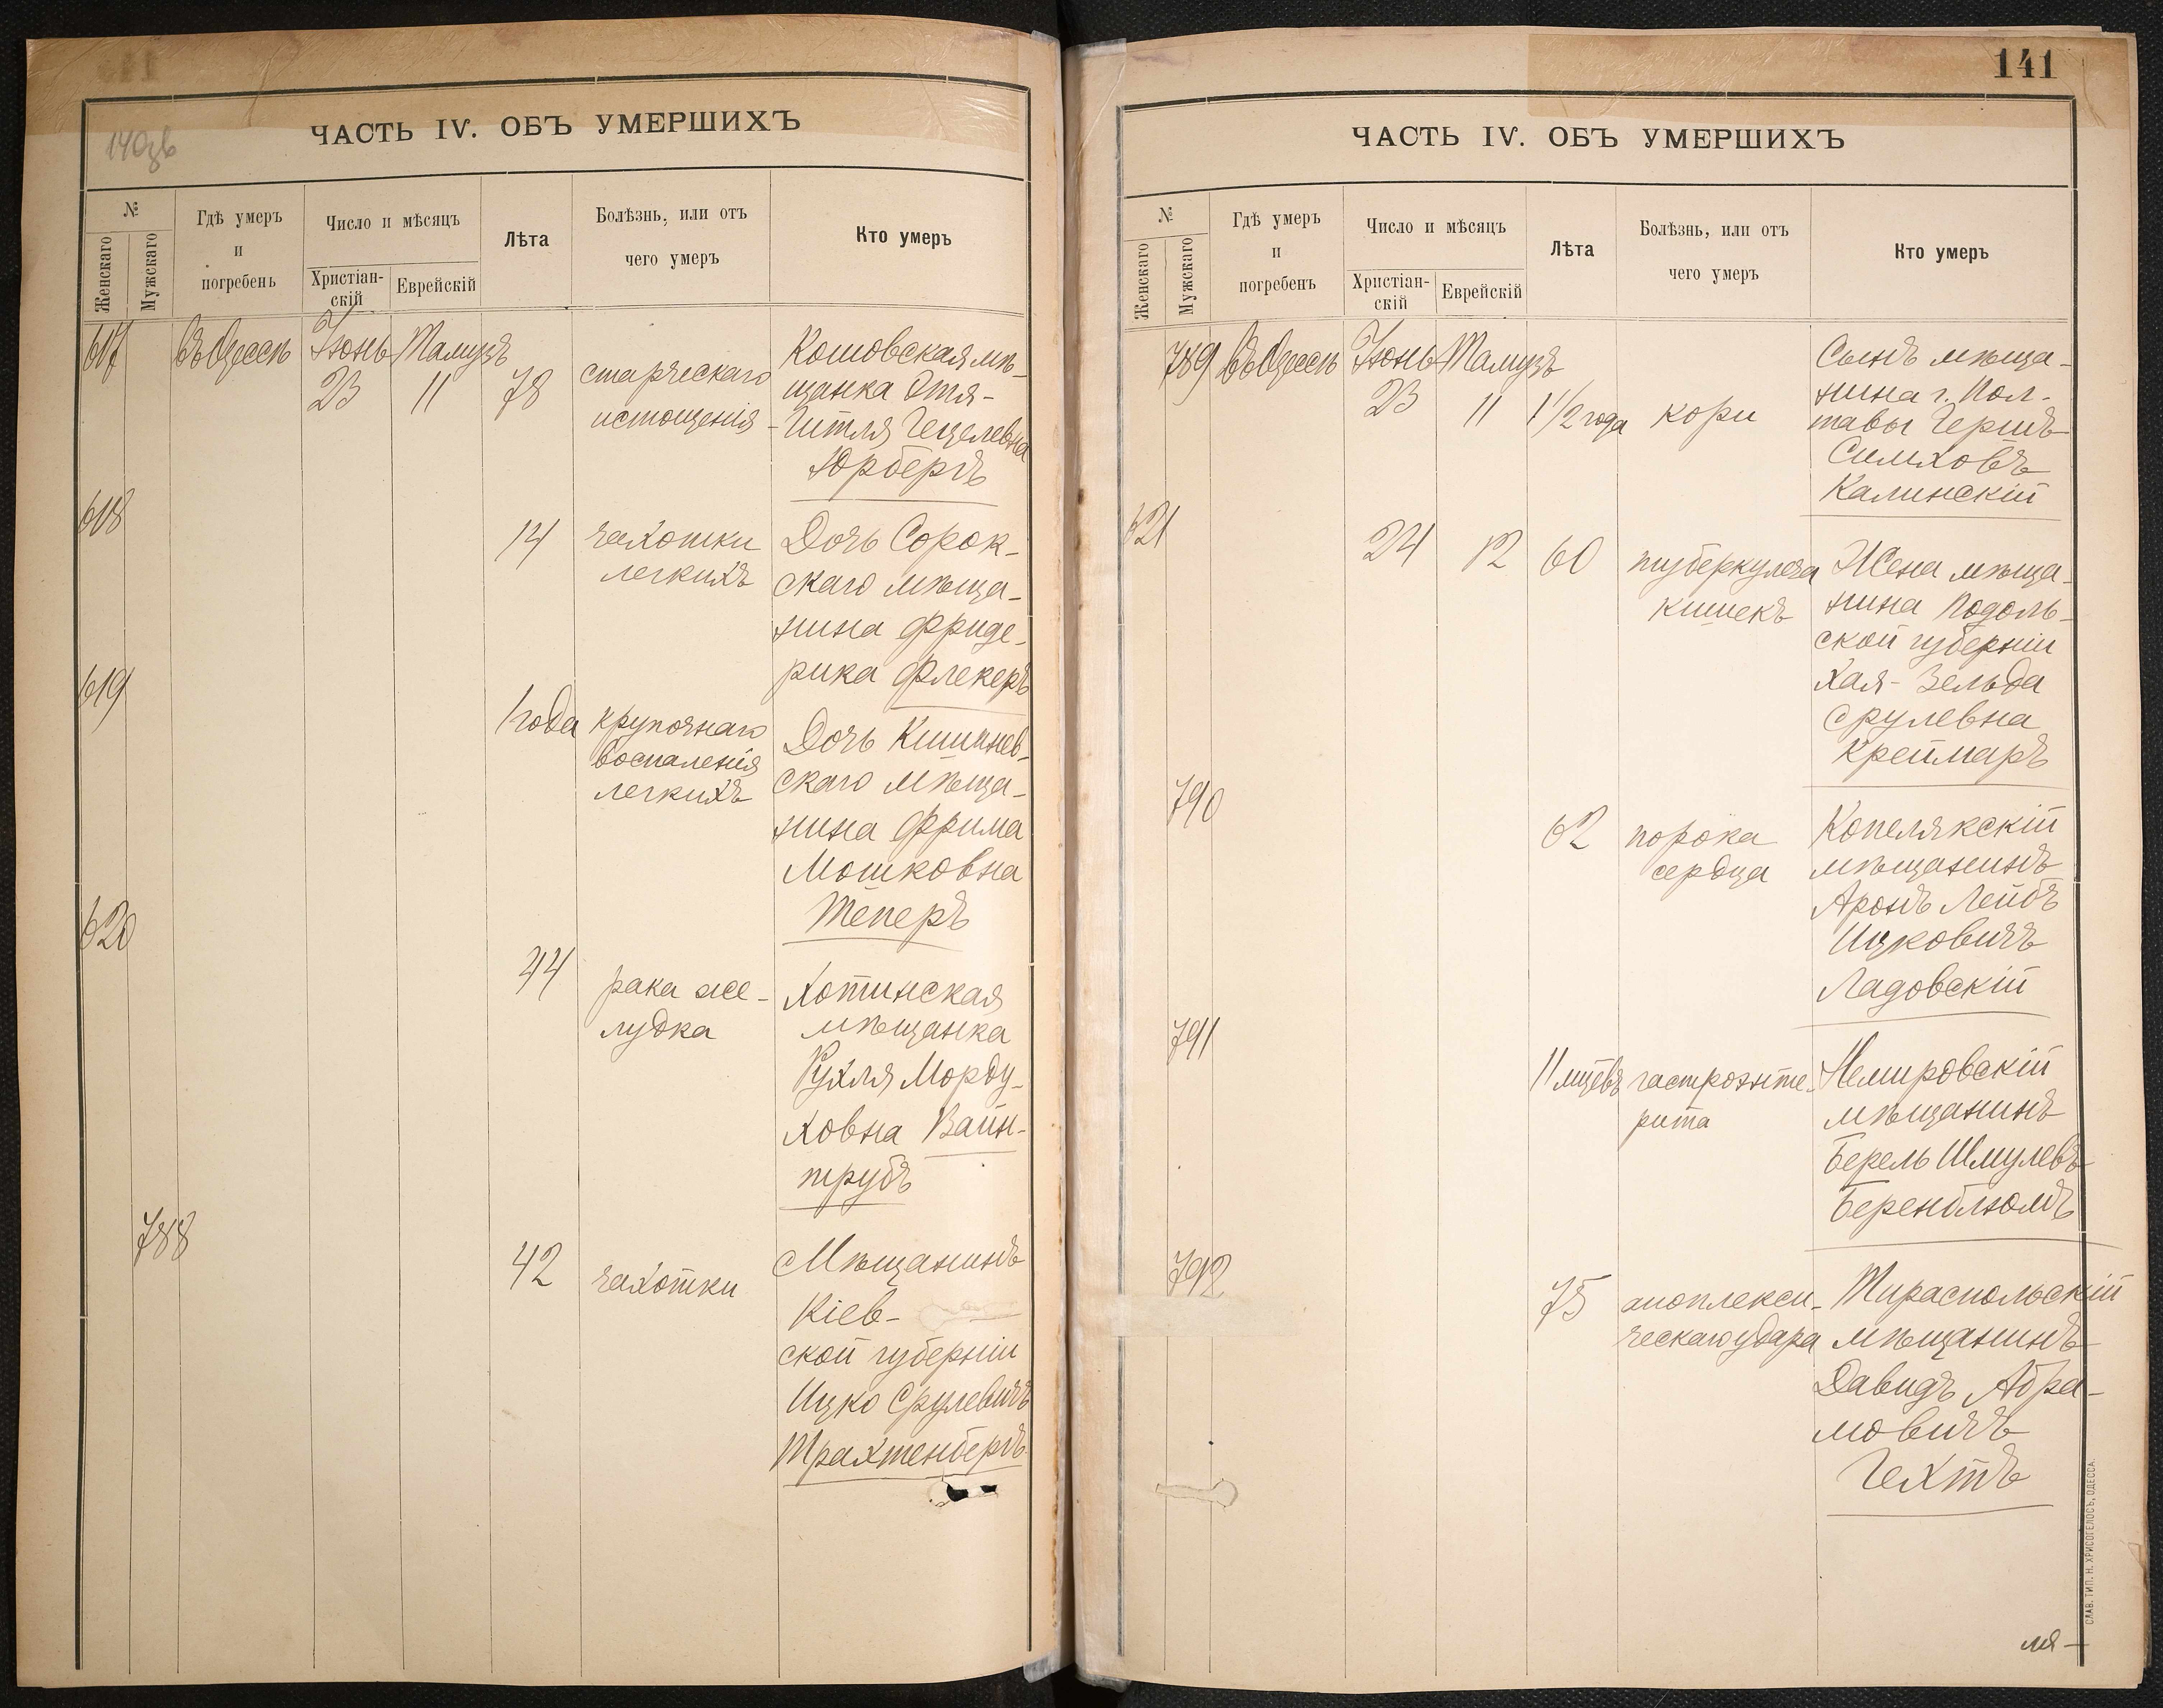 140зв
ЧАСТЬ IV. ОБЪ УМЕРШИХЪ
№
Женскаго
Мужскаго
Гдѣ умеръ
и
погребенъ
Число и мѣсяцъ
Христіан-
скій
Еврейскій
Лѣта
Болѣзнь, или отъ
чего умеръ
Кто умеръ
617
въ Одессѣ
Іюнь
23
Тамузъ
11
78
старческаго
истощенія
Кошовская мѣ-
щанка Этя-
Гитля Гецелевна
Юрбергъ
618
14
чахотки
легкихъ
Дочь Сорок-
скаго мѣща-
нина Фриде-
рика Флекеръ
619
1 года
крупознаго
воспаленія
легкихъ
Дочь Кишинев-
скаго мѣща-
нина Фрима
Мошковна
Теперъ
620
44
рака же-
лудка
Хотинская
мѣщанка
Рухля Морду-
ховна Вайн-
трубъ
788
42
чахотки
Мѣщанинъ
Кіев-
ской губерніи
Ицко Срулевичъ
Трахтенбергъ
141
ЧАСТЬ IV. ОБЪ УМЕРШИХЪ
№
Женскаго
Мужскаго
Гдѣ умеръ
и
погребенъ
Число и мѣсяцъ
Христіан-
скій
Еврейскій
Лѣта
Болѣзнь, или отъ
чего умеръ
Кто умеръ
789
въ Одессѣ
Іюнь
23
Тамузъ
11
1 1/2 года
кори
Сынъ мѣща-
нина г. Пол-
тавы Гершъ
Симховъ
Калинскій
621
24
12
60
туберкулеза
кишекъ
Жена мѣща-
нина Подоль-
ской губерніи
Хая-Зельда
Срулевна
Креймаръ
790
62
порока
сердца
Копелякскій
мѣщанинъ
Аронъ Лейбъ
Ицковичъ
Ладовскій
791
11 мцевъ
гастроэнте-
рита
Немировскій
мѣщанинъ
Берель Шмулевъ
Беренблюмъ
792
75
апоплекси-
ческаго удара
Тираспольскій
мѣщанинъ
Давидъ Абра-
мовичъ
Гехтъ
СЛАВ. ТИП. Н. ХРИСОГЕЛОСЪ, ОДЕССА.